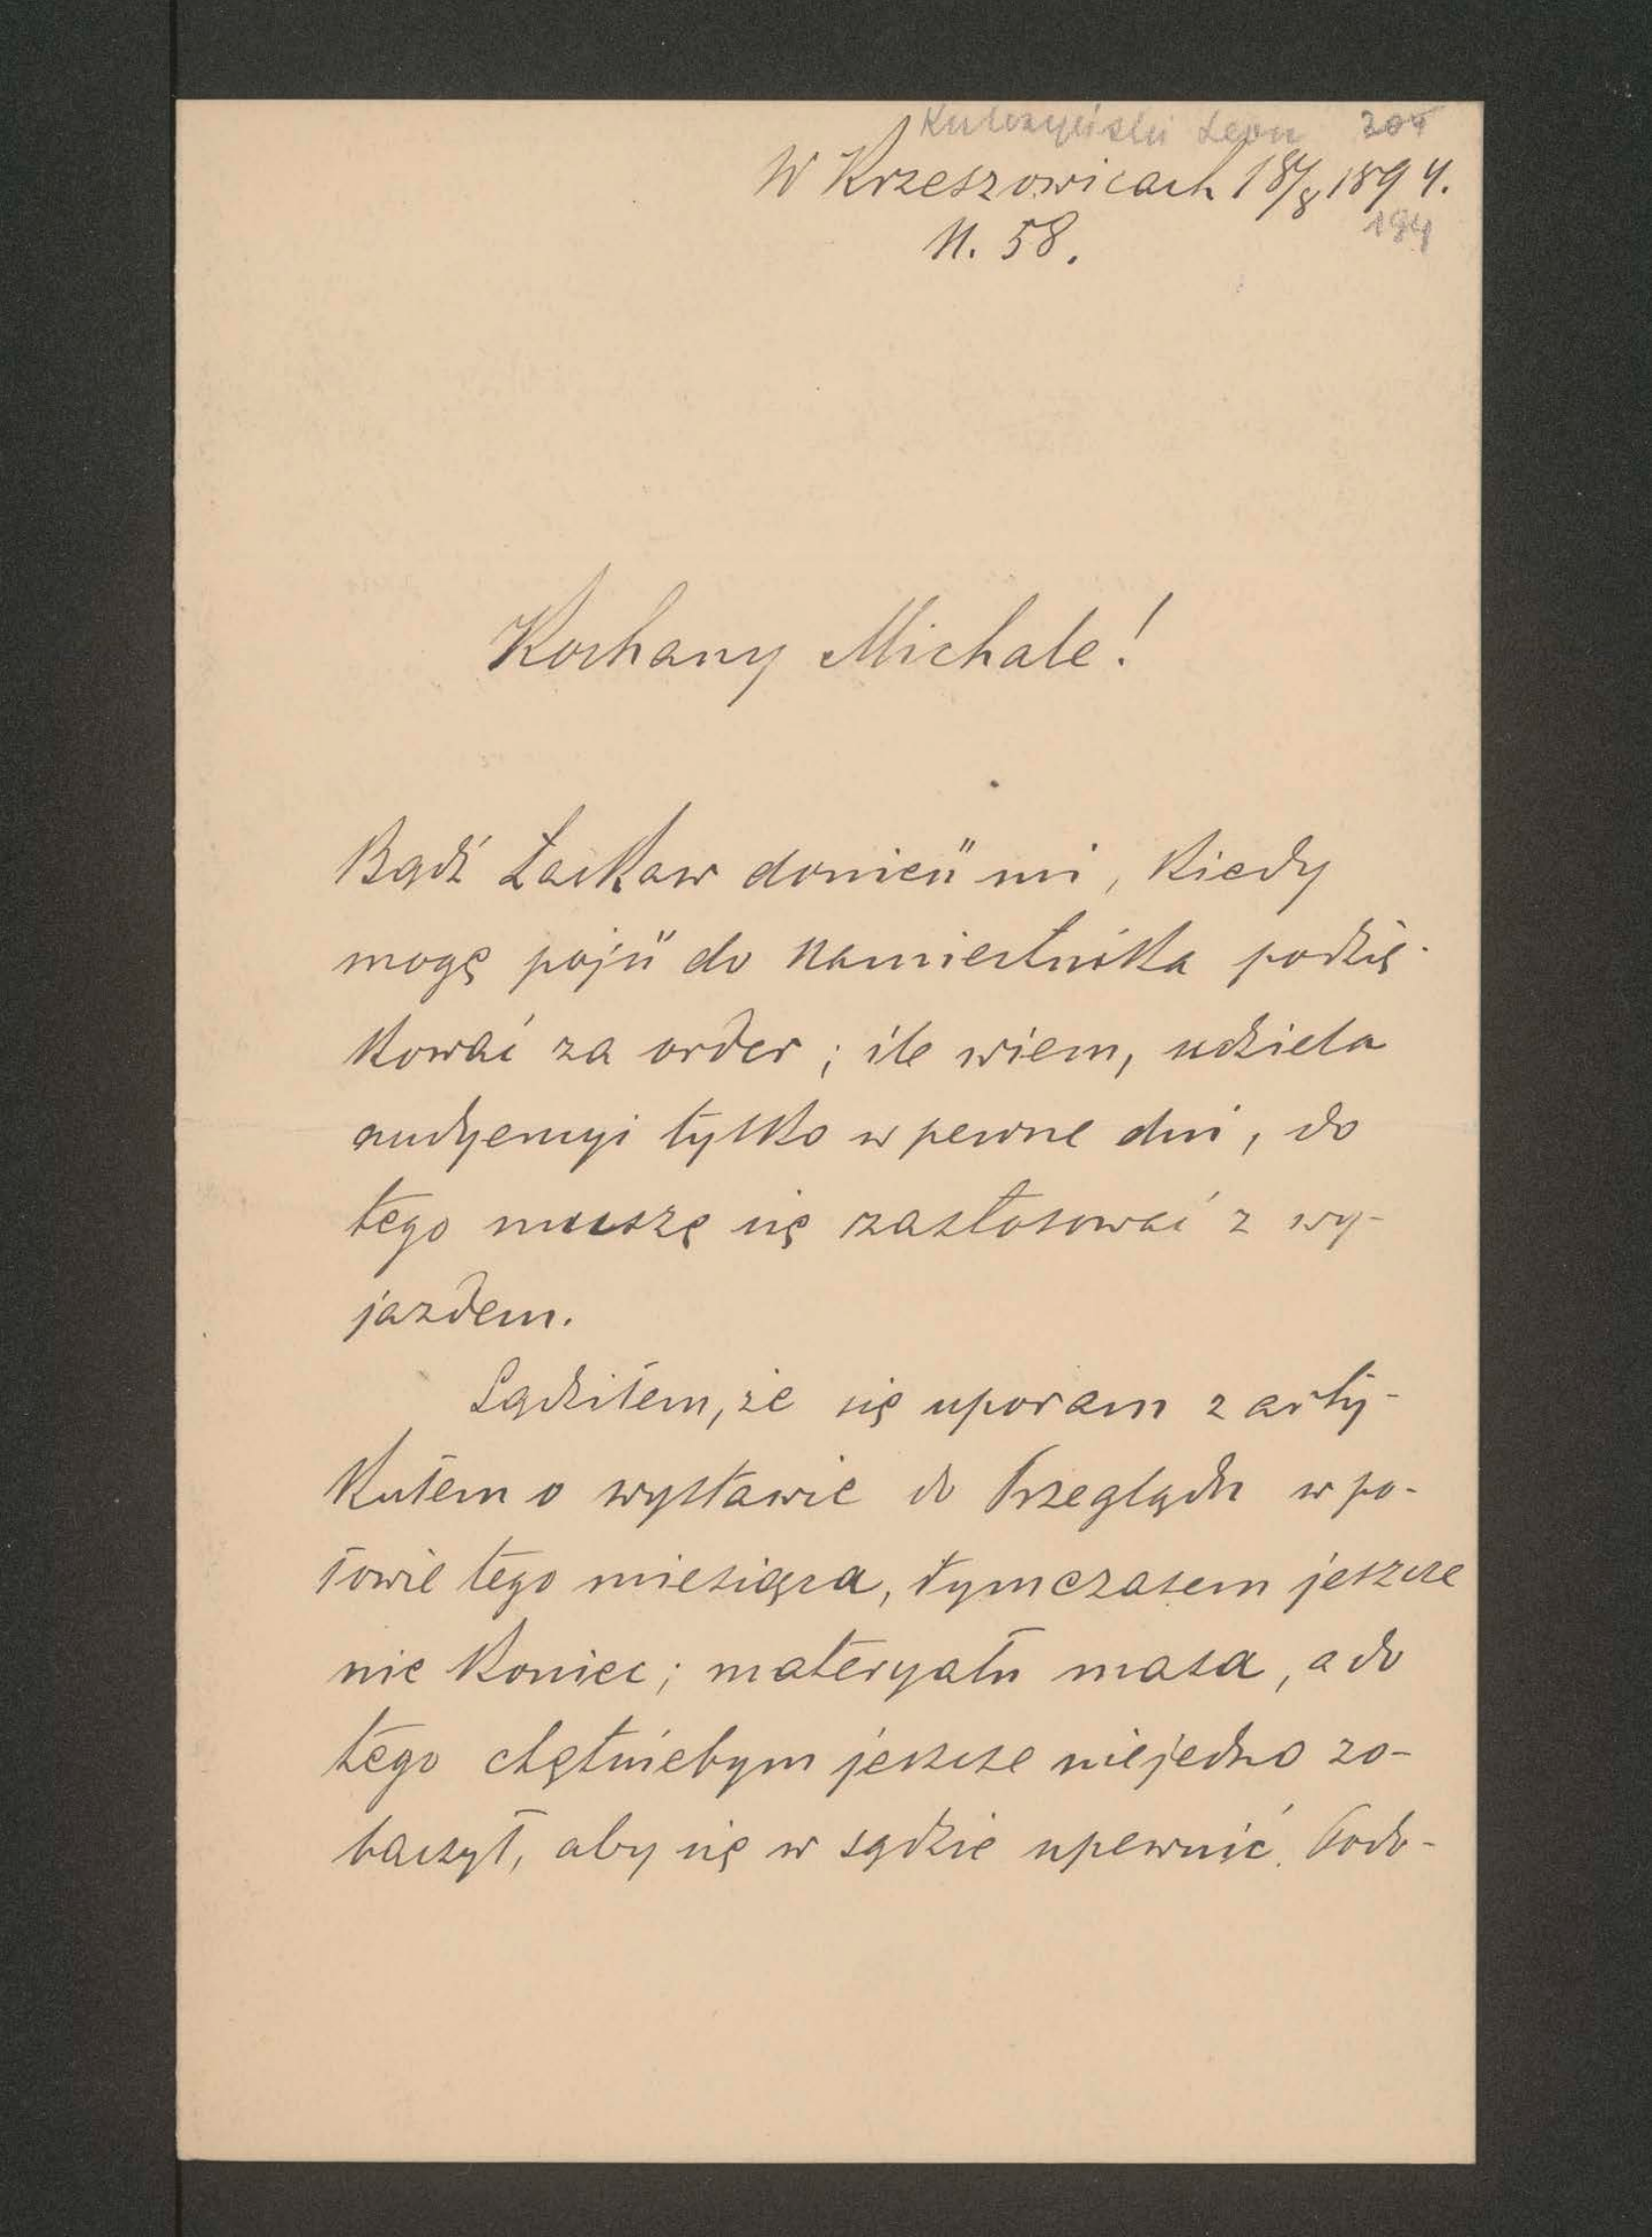 Kulczyński Leon 205
W Krzeszowicach 18/8 1894.
N. 58. 194
Kochany Michale!
Bądź Łaskaw donieść mi, kiedy
mogę pójść do Namiestnika podzię-
kować za order; ile wiem, udziela
audyencyi tylko w pewne dni, do
tego muszę się zastosować z wy-
jazdem.
Sądziłem, że się uporam z arty-
kułem o wystawie do Przeglądu w po-
łowie tego miesiąca, tymczasem jeszcze
nie koniec; materyału masa, a do
tego chętniebym jeszcze niejedno zo-
baczył, aby się w sądzie upewnić. Podo-